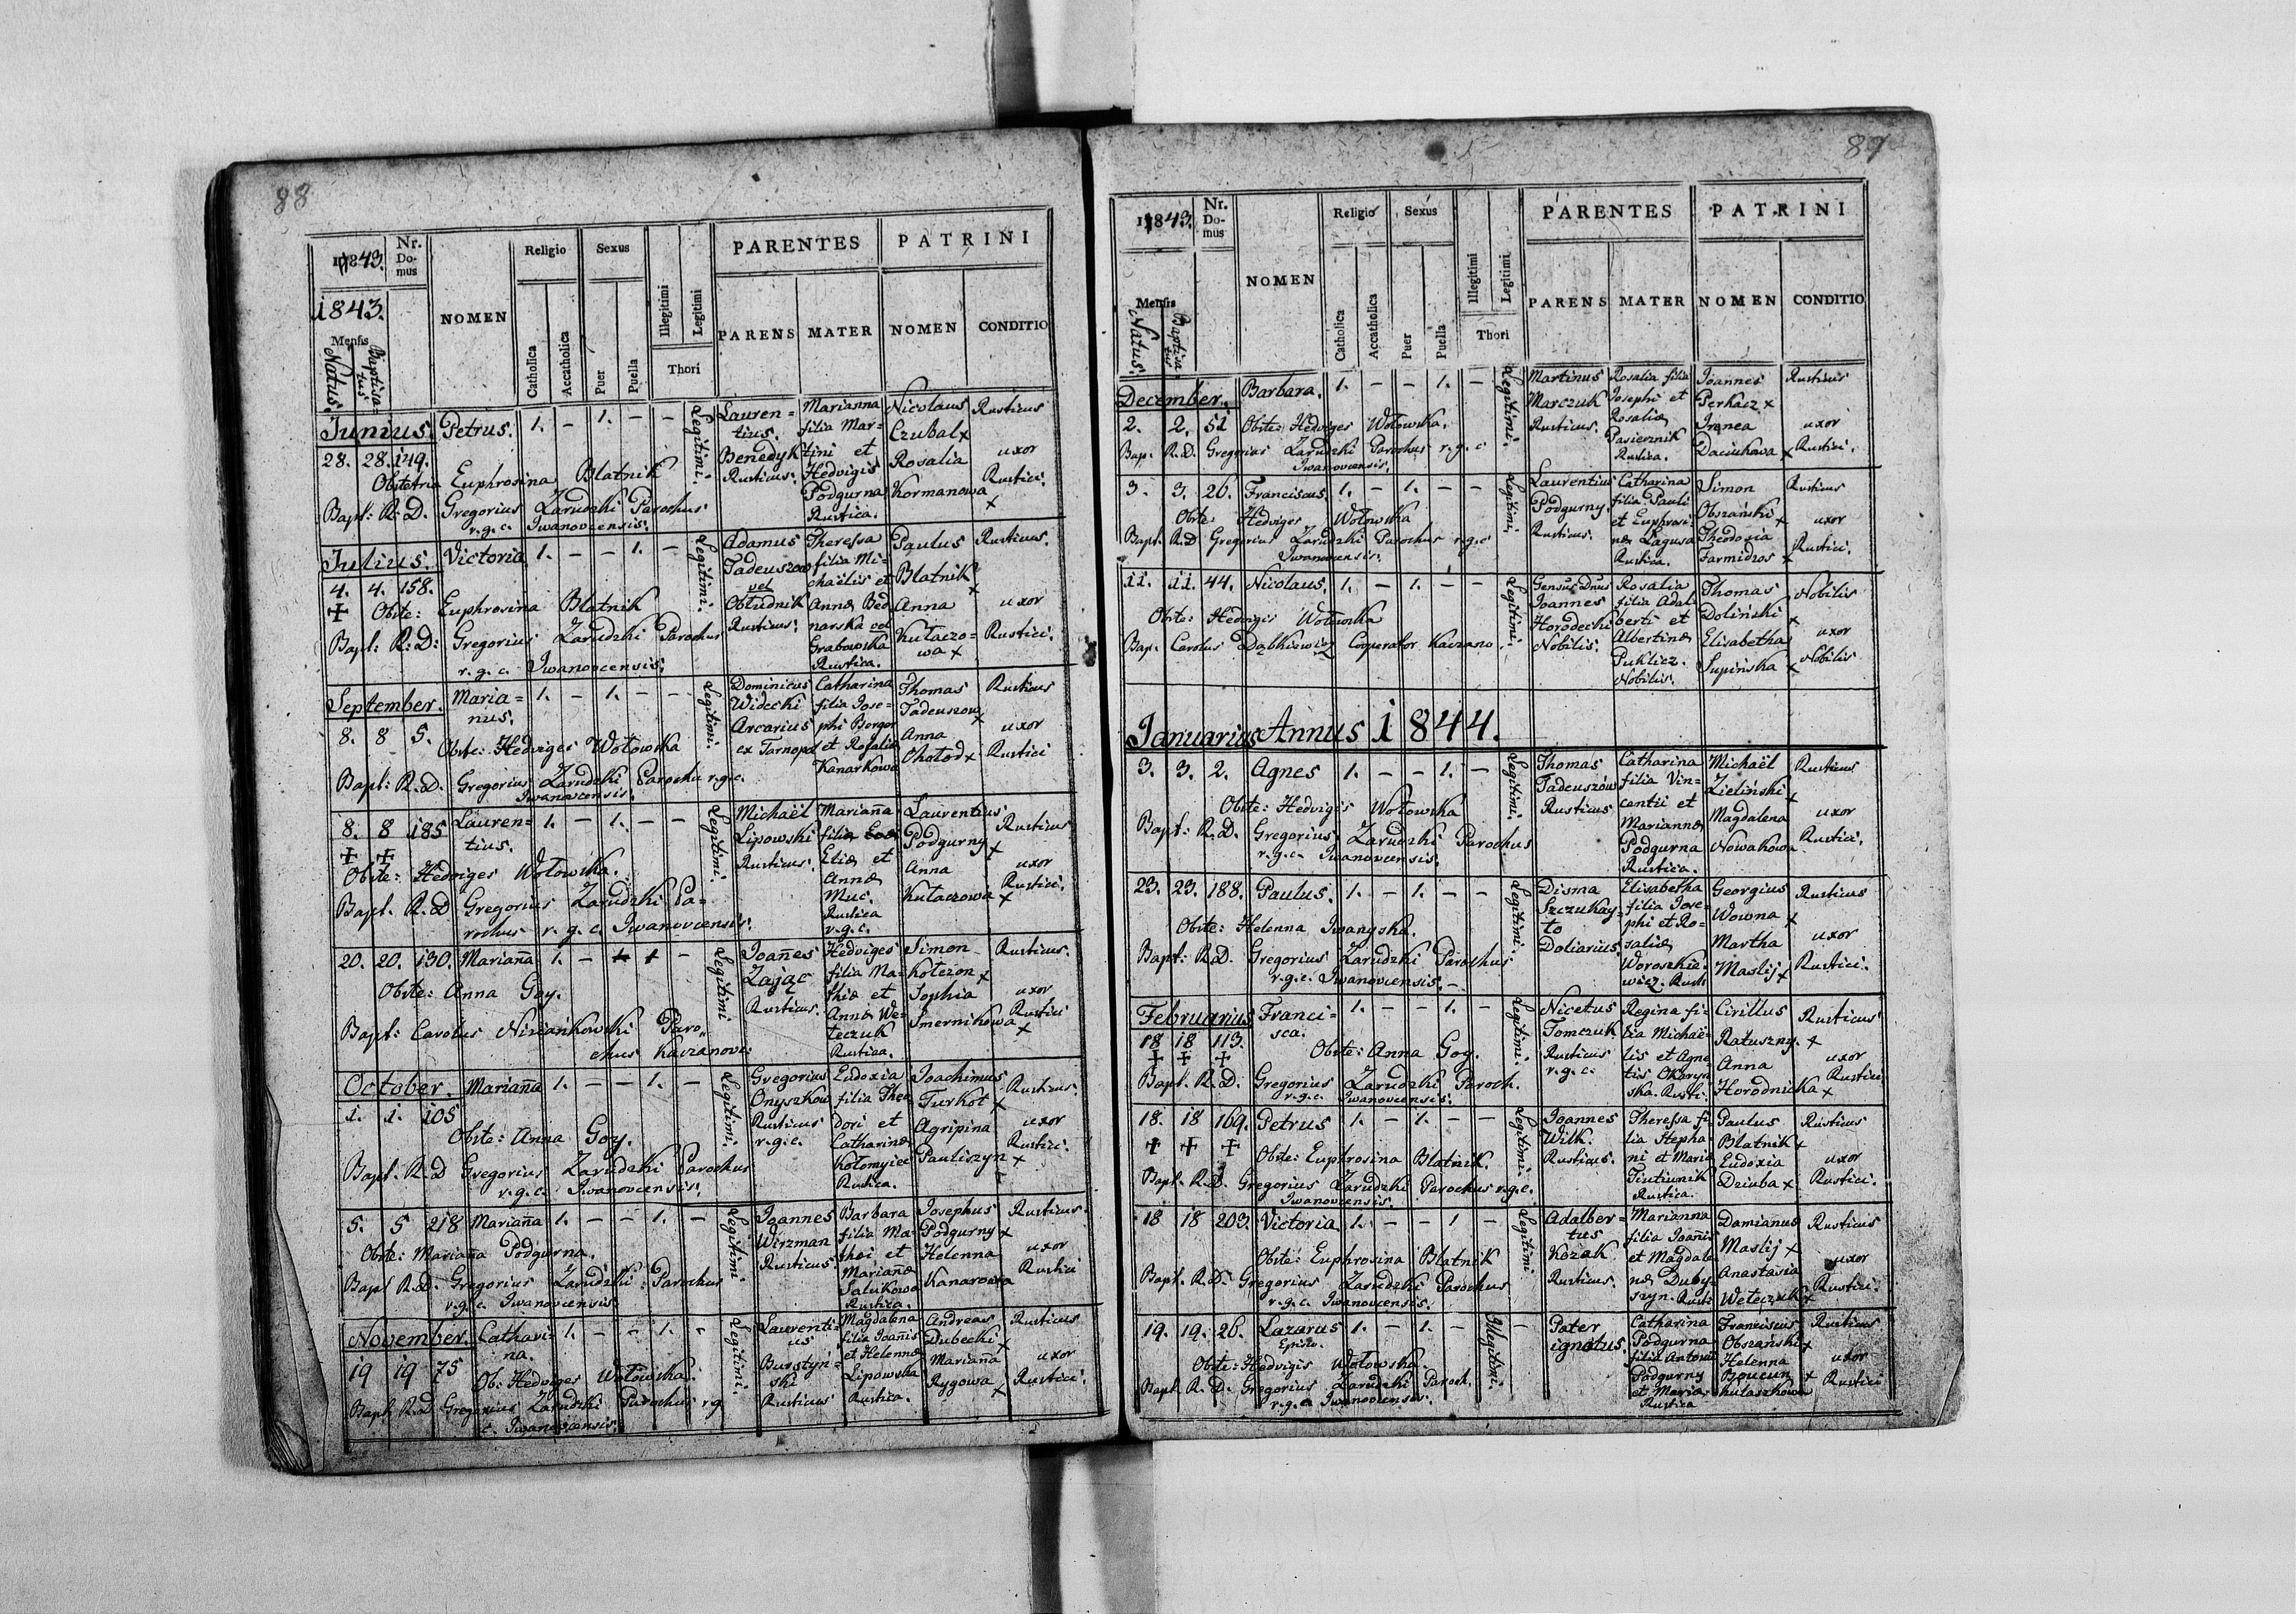 88
1843.
Nr. Domus
NOMEN
Religio
Sexus
Illegitimi
Legitimi
PARENTES
PATRINI
1843.
Mensis
Natus.
Baptisatus
Catholica
Accatholica
Puer
Puella
Thori
PARENS
MATER
NOMEN
CONDITIO
Junius. Petrus. 1. – 1. – – Legitimi. Laurentius. Marianna Nicolaus Rusticus
28. 28. 149. Benedyk filia Martini et Czubal x
Obstetrix Euphrosina Blatnik Rusticus. Hedvigis Rosalia uxor
Bapt: R: D. Gregorius Zarudzki Parochus Podgurna Kormanowa Rustici.
r. g. c. Iwanovcensis. Rustica. x
Julius. Victoria 1. – – 1. – Legitimi. Adamus Theressa Paulus Rusticus.
4. 4. 158. Tadeuszow filia Michaëlis et Blatnik x
Obste: Euphrosina Blatnik vel Obłudnik Annæ Bednarska vel Anna uxor
Bapt: R: D: Gregorius Zarudzki Parochus Rusticus. Grabowska Kułaczowa x Rustici.
r. g. c. Iwanovcensis. Rustica.
September. Marianus. 1. – 1. – – Legitimi. Dominicus Catharina Thomas Rusticus
8. 8 5. Widecki filia Josephi Tadeuszow x
Obste: Hedviges Wołowska Arcarius Anna uxor
Bapt: R. D. Gregorius Zarudzki Parochu r.g.c. ex Tarnopol et Rosaliæ Kanarkowa Chołod x Rustici
Iwanovcensis.
8. 8 185 Laurentius. 1. – 1. – – Legitimi. Michaël Marianna Laurentius Rusticus
Obste: Hedviges Wołowska. Lipowski filia Eliæ et Podgurny x
Bapt. R. D Gregorius Zarudzki Parochus r. g. c. Iwanovcensis. Rusticus. Annæ Muc. Anna uxor
Rustica r. g. c. Kułaczowa x Rustici.
20. 20. 130. Marianna 1. – Legitimi Joannes Hedviges Simon Rusticus.
Obste: Anna Goy. Zając filia Mathiæ et Kołezon x
Bapt: Carolus Parochus Kaczanov: Rusticus. Annæ Weteczuk Sophia uxor
Rustica. Smernikowa x Rustici
October. Marianna 1. – – 1. – Legitimi. Gregorius Eudoxia Joachimus Rusticus.
1. 1. 105 Onyszkow filia Theodori et Turkot x
Obste: Anna Goy. Rusticus r. g. c. Catharinæ Agripina uxor
Bapt. R. D Gregorius Zarudzki Parochus Kołomyiec Pauliszyn x Rustici.
r. g. c. Iwanovcensis. Rustica.
5. 5 218 Marianna 1. – – 1. – Legitimi Joannes Barbara Josephus Rusticus.
Obste: Marianna Podgurna. Wirzman filia Mathei et Podgurny x
Bapt R. D. Gregorius Zarudzki Parochus Rusticus. Mariannæ Helenna uxor
r. g. c. Iwanovcensis. Sałukowa Rustica. Kanarowa Rustici
November. Catharina. 1. – – 1. – Legitimi. Laurentius Magdalena Andreas Rusticus
19 19 75 filia Joannis Dubecki x
Ob: Hedviges Wołowska. Burstyński et Helennæ Marianna uxor
Bapt R. D Gregorius Zarudzki Parochus r. g. Rusticus Lipowska Rygowa x Rustici.
c. Iwanovcensis. Rustica.
1843.
Nr. Domus
NOMEN
Religio
Sexus
Illegitimi
Legitimi
PARENTES
PATRINI
Mensis
Natus.
Baptisatus
Catholica
Accatholica
Puer
Puella
Thori
PARENS
MATER
NOMEN
CONDITIO
December. Barbara. 1. – – 1. – Legitimi. Martinus Rosalia filia Joannes Rusticus
2. 2. 51 Obste: Hedviges Wołowska. Marczuk Josephi et Rosaliæ Perkacz x
Bap. R. D. Gregorius Zarudzki Parochus r. g. c Rusticus. Pasiecznik Irenea uxor
Iwanovcensis. Rustica. Daciukowa x Rustici.
3. 3. 26. Franciscus. 1. – 1. – – Legitimi. Laurentius Catharina Simon Rusticus
Obste: Hedviges Wołowska Podgurny. filia Pauli Obszański x
Bapt. R. D Gregorius Zarudzki Parochus r. g. c Rusticus. et Euphrosinæ Łagusa Theodosia uxor
Iwanovcensis. Rustica. Farmidros x Rustici.
11. 11. 44. Nicolaus. 1. – 1. – – Legitimi. Joannes Rosalia Thomas Nobilis
Obste: Hedviges Wołowska Horodecki filia Adalberti et Doliński x
Bap. Carolus Dąbkiewicz Cooperator Kaczano. Nobilis. Albertinæ Puklicz. Elisabetha uxor
Nobilis. Supińska x Nobilis
Januarius Annus 1844.
3. 3. 2. Agnes 1. – – 1. – Legitimi. Thomas Catharina Michaël Rusticus
Obste: Hedvigis Wołowska Tadeuszów filia Vincentii et Zieliński x
Bapt: R. D. Gregorius Zarudzki Parochus Rusticus Mariannæ Magdalena uxor
r. g. c. Iwanovcensis. Podgurna Rustica. Nowakowa Rustici.
23. 23. 188. Paulus. 1. – 1. – – Legitimi. Disma Elisabetha Georgius Rusticus
Obste: Helenna Iwanyska. Szczukayto filia Josephi et Rosaliæ Wowna x
Bapt: R. D. Gregorius Zarudzki Parochus Doliarius. Woroszkiewicz. Rusti Martha uxor
r. g. c. Iwanovcensis. Maslij x Rustici.
Februarius Francisca. 1. – – 1. – Legitimi. Nicetus Regina filia Cirillus Rusticus
18 18 113. Obste: Anna Goy. Tomczuk. Michaëlis et Agnetis Ratuszny. x
Bapt. R. D. Gregorius Zarudzki Paroch. Rusticus Okarynska. Rusti. Anna uxor
r. g. c. Iwanovcensis. r. g. c. Horodnicka x Rustici
18. 18 169. Petrus 1. – 1. – – Legitimi. Joannes Theressa filia Paulus Rusticus
Obste: Euphrosina Blatnik. Wilk. Stephani et Mariæ Blatnik x
Bapt. R. D. Gregorius Zarudzki Parochus r. g. c. Rusticus. Tiutiunik Eudoxia uxor
Iwanovcensis. Rustica. Dziuba x Rustici.
18 18 203. Victoria 1. – – 1 – Legitimi. Adalbertus Marianna Damianus Rusticus
Obste: Euphrosina Blatnik Kozak filia Joannis Maslij x
Bapt. R. D. Gregorius Zarudzki Parochus Rusticus. et Magdalenæ Dubyszyn. Rusti Anastasia uxor
r. g. c. Iwanovcensis. Weteczuk x Rustici.
19. 19. 26. Lazarus 1. – 1. – Illegitimi. – Pater Catharina Franciscus Rusticus
Obste: Hedvigis Wołowska. ignotus. Podgurna Obszański x
Bapt. R. D. Gregorius Zarudzki Paroch. filia Antonii Helenna uxor
r. g. c Iwanovcensis. Podgurny et Mariæ Rustica Kułaszkowa Rustici